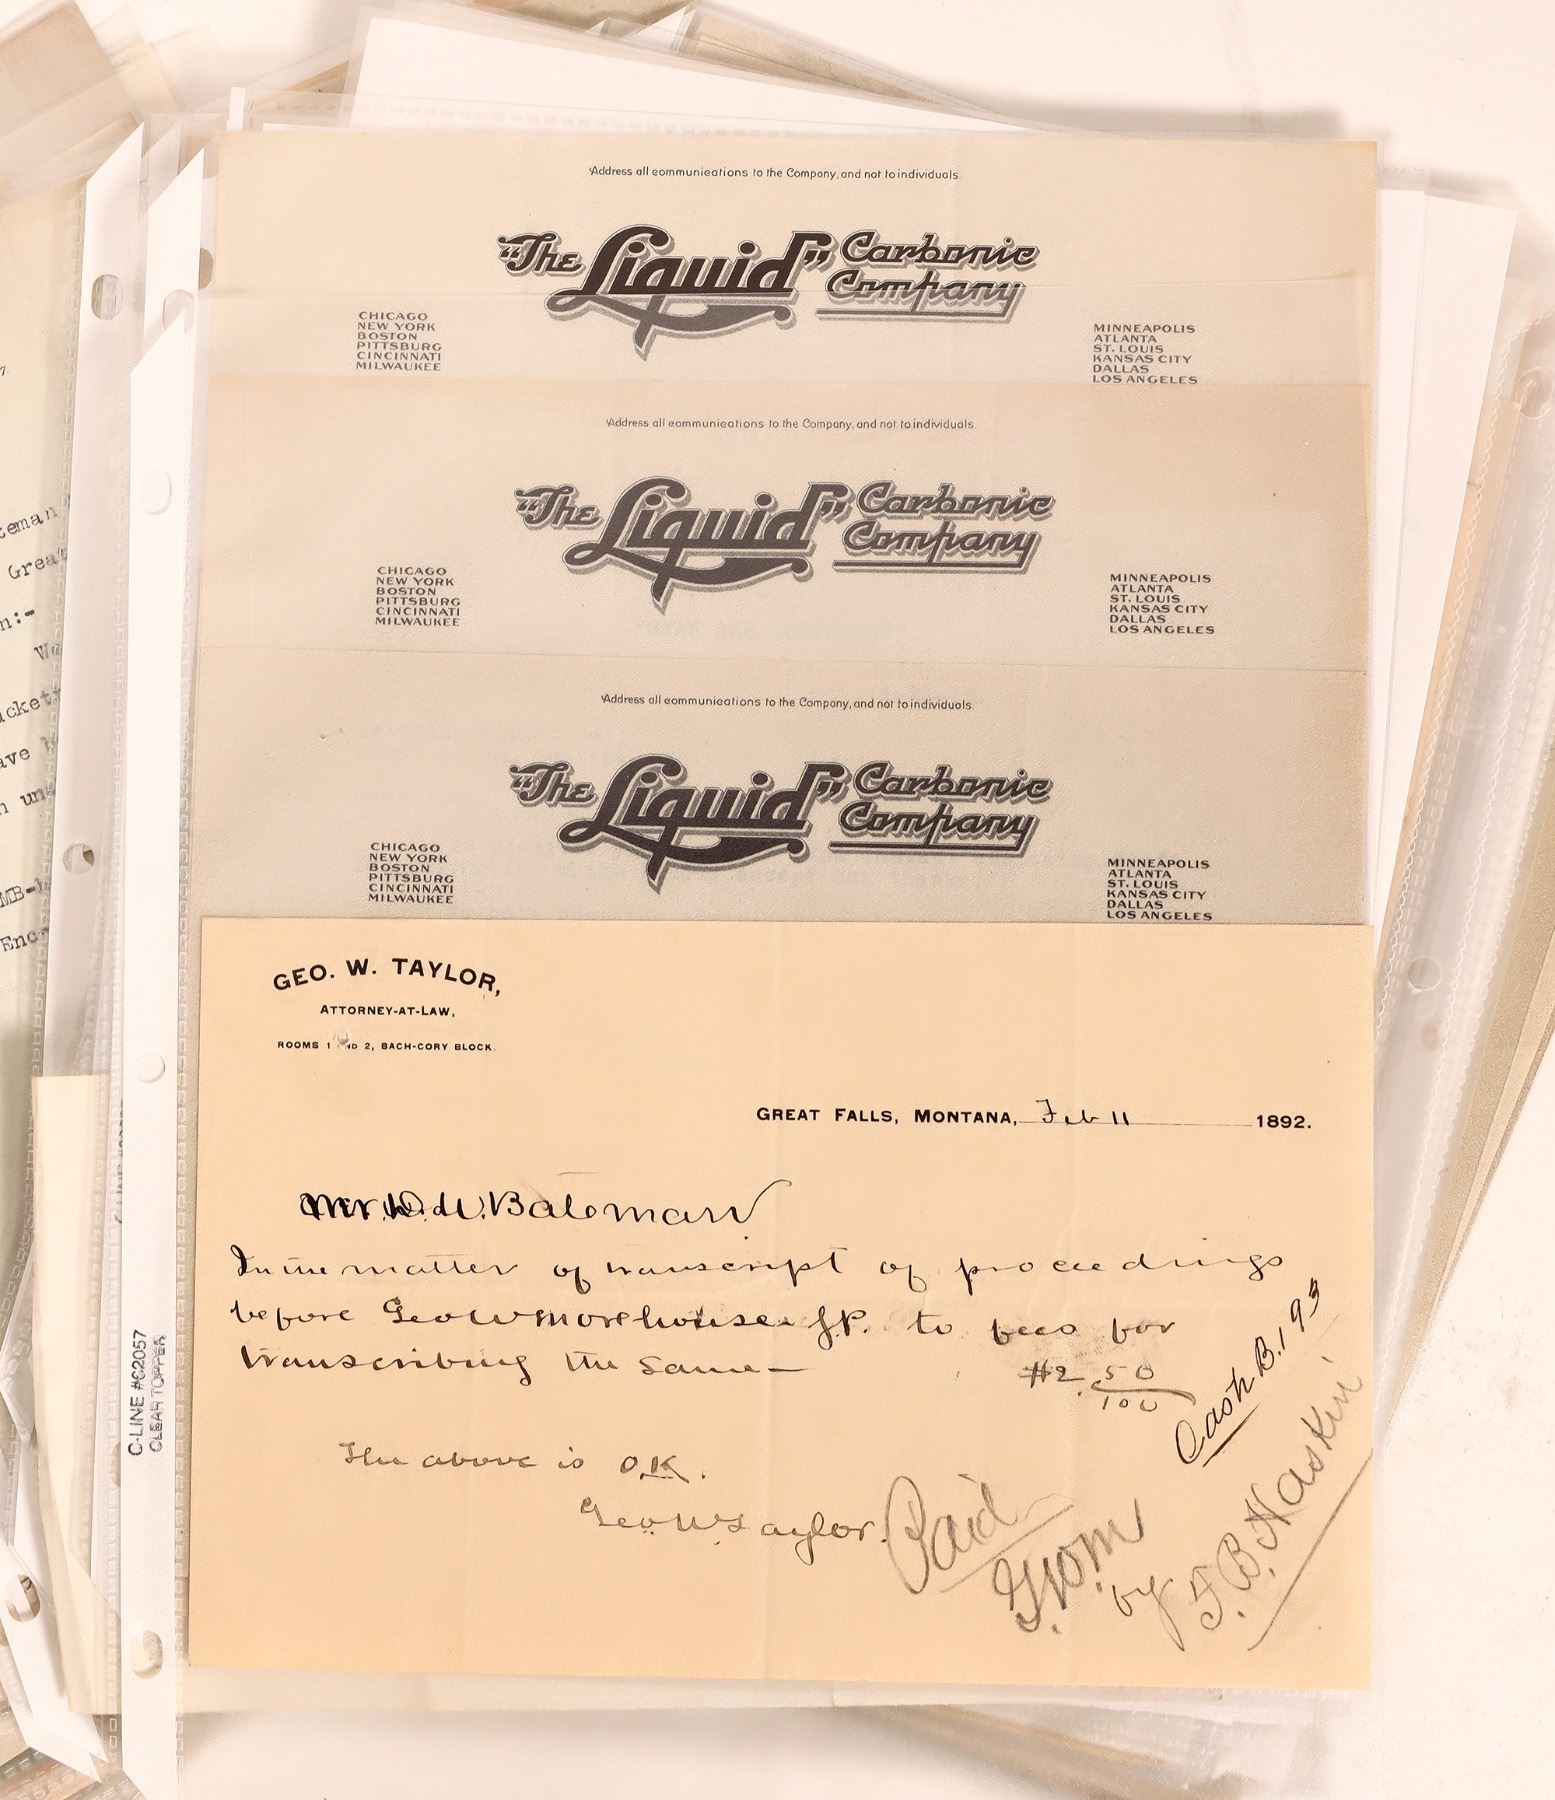 Address all communications to the Company, and not to individuals.
"The Liquid" Carbonic
Company
CHICAGO
NEW YORK
BOSTON
PITTSBURG
CINCINNATI
MILWAUKEE
MINNEAPOLIS
ATLANTA
ST. LOUIS
KANSAS CITY
DALLAS
LOS ANGELES
Address all communications to the Company, and not to individuals.
"The Liquid" Carbonic
Company
CHICAGO
NEW YORK
BOSTON
PITTSBURG
CINCINNATI
MILWAUKEE
MINNEAPOLIS
ATLANTA
ST. LOUIS
KANSAS CITY
DALLAS
LOS ANGELES
Address all communications to the Company, and not to individuals.
"The Liquid" Carbonic
Company
CHICAGO
NEW YORK
BOSTON
PITTSBURG
CINCINNATI
MILWAUKEE
MINNEAPOLIS
ATLANTA
ST. LOUIS
KANSAS CITY
DALLAS
LOS ANGELES
GEO. W. TAYLOR,
ATTORNEY-AT-LAW,
ROOMS 1 AND 2, BACH-CORY BLOCK.
GREAT FALLS, MONTANA, Feb 11 1892.
Mr. W. Bateman
In the matter of transcript of proceedings
before Geo W Morehouse J.P. to fees for
transcribing the same— $2.50/100
The above is O.K.
Geo. W. Taylor.
Cash B. 193
Paid
G.W.M.
by F. B. Haskin
C-LINE #62057
CLEAR TOPPER
eman
Great
n:-
We
cket
ave
n un
MB-h
Enc